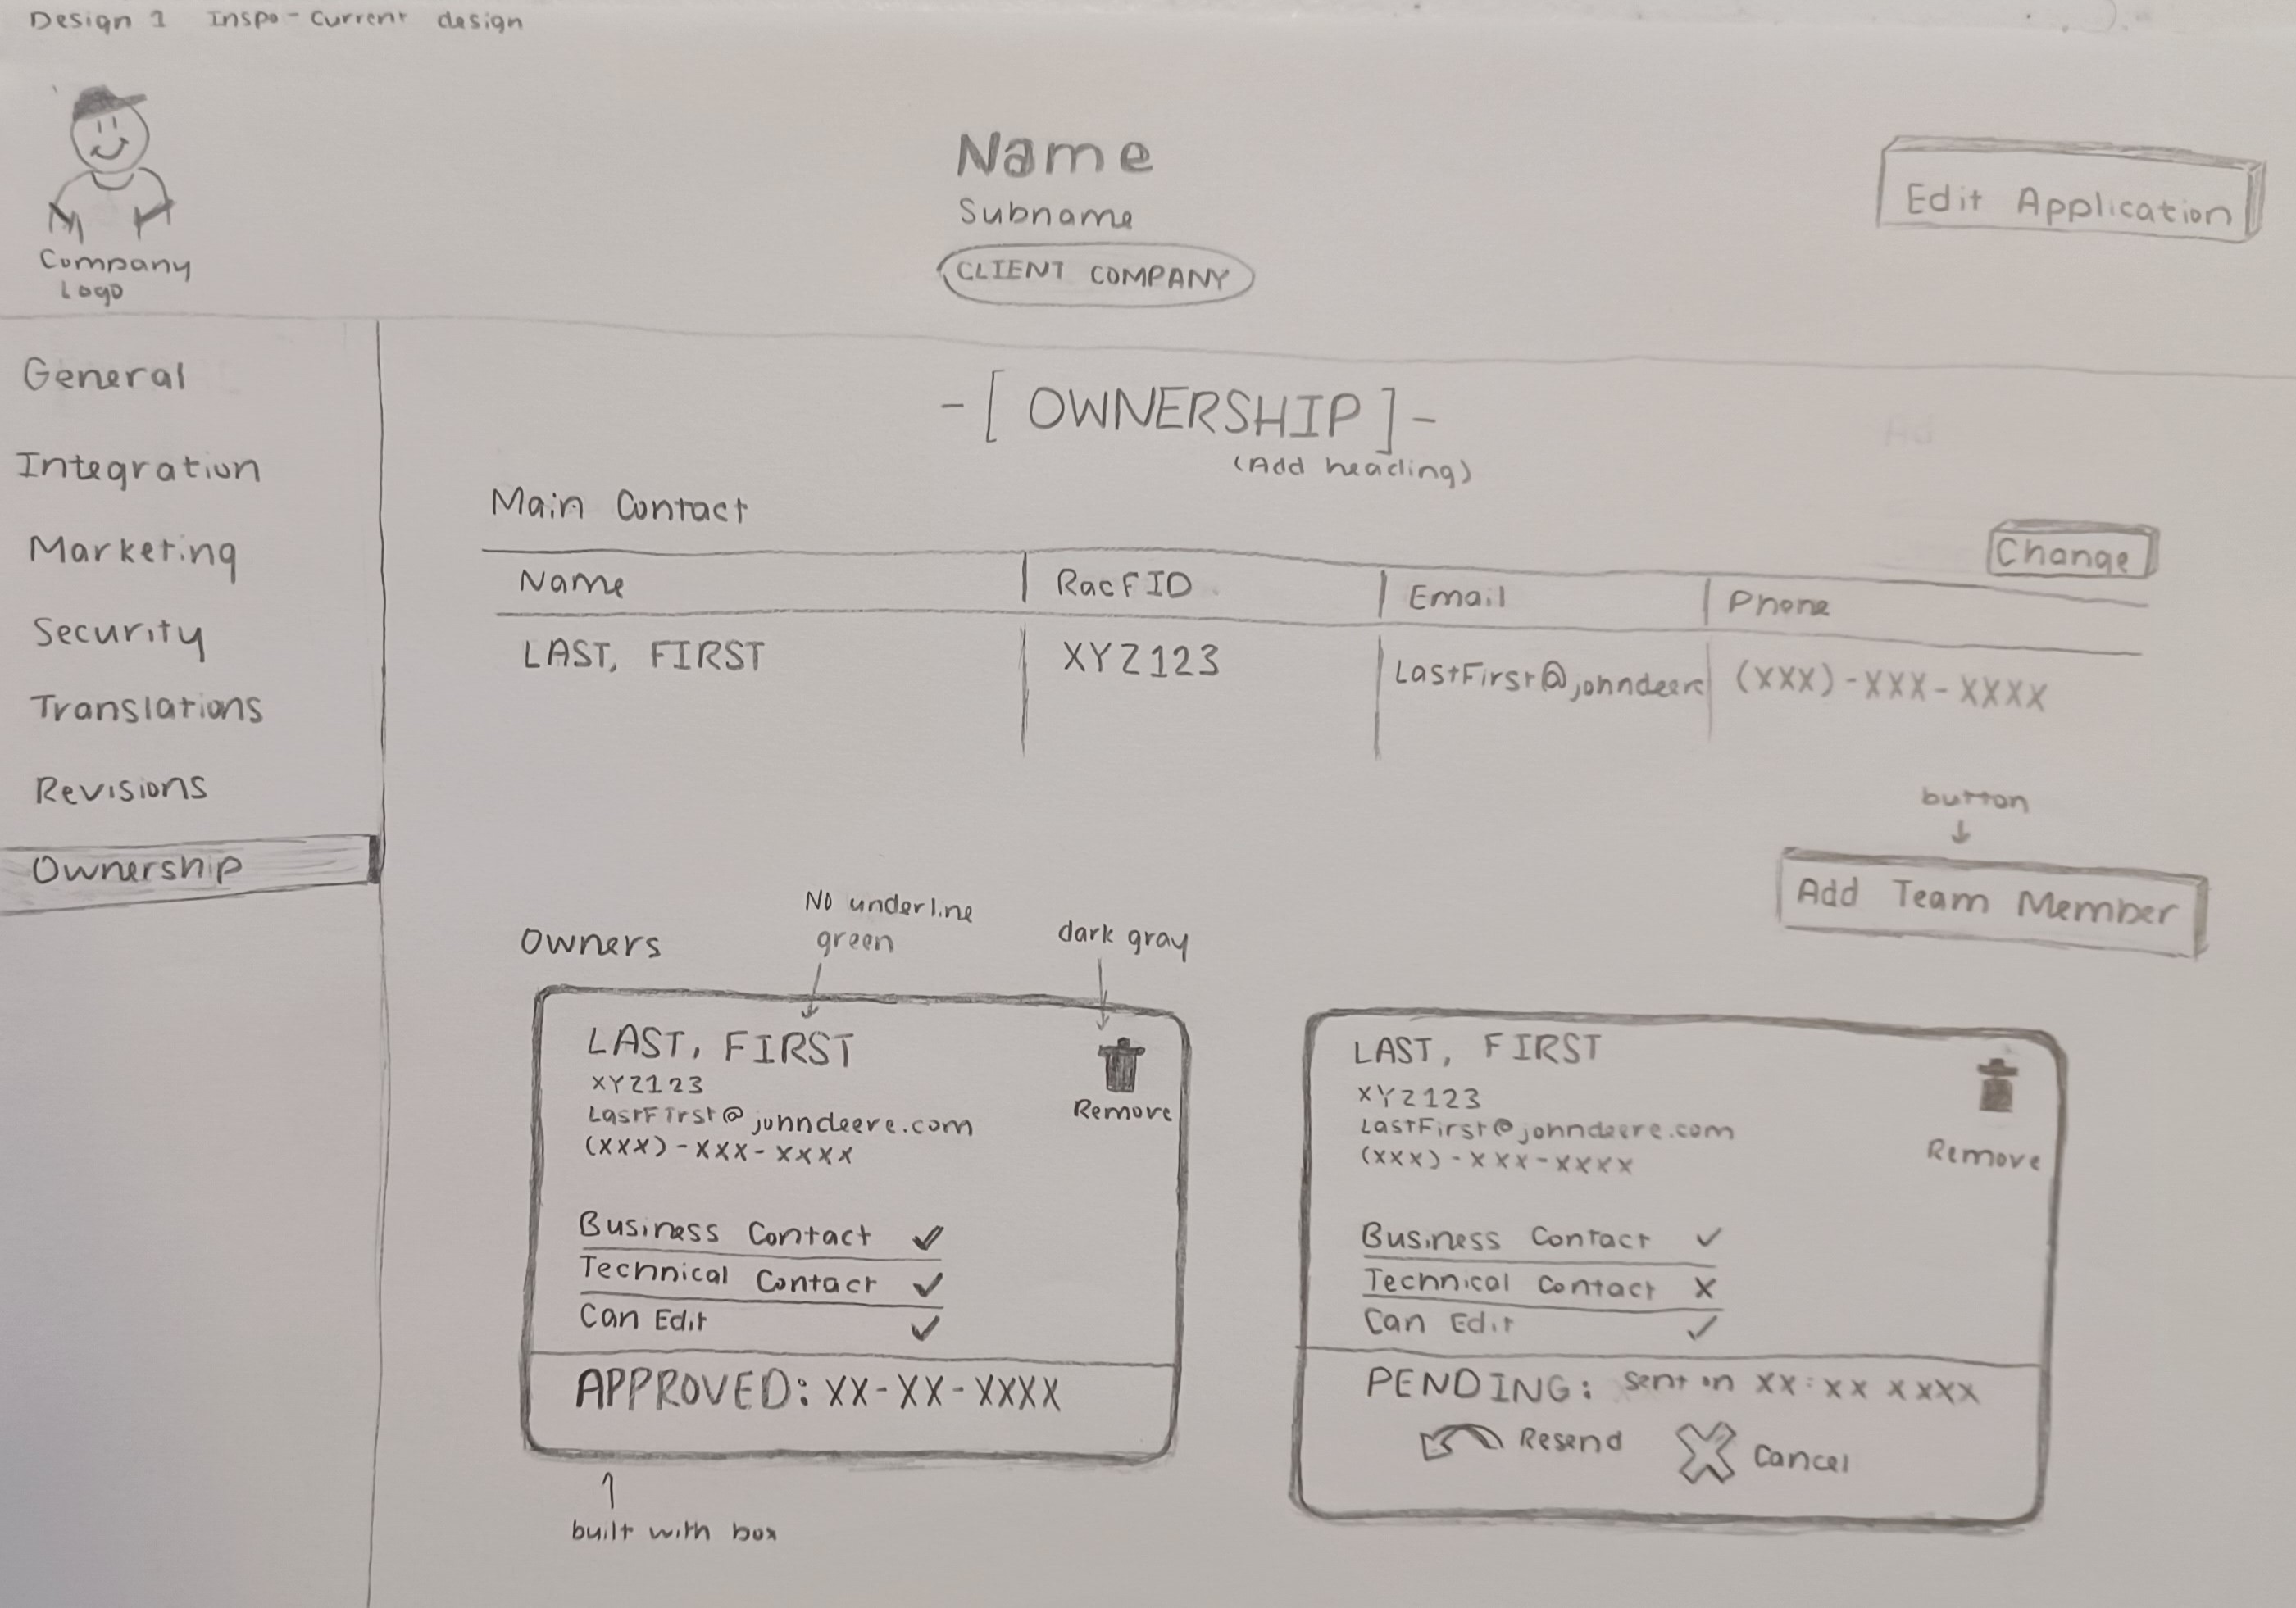 Design 1 Inspo - Current design
Company
Logo
Name
Subname
CLIENT COMPANY
Edit Application
General
Integration
Marketing
Security
Translations
Revisions
Ownership
-[ OWNERSHIP ]-
(Add heading)
Main Contact
Change
Name RacFID Email Phone
LAST, FIRST XYZ123 LastFirst@johndeere (XXX)-XXX-XXXX
button
Add Team Member
Owners
No underline
green
dark gray
LAST, FIRST
XYZ123
LastFirst@johndeere.com
(XXX)-XXX-XXXX
Remove
Business Contact ✓
Technical Contact ✓
Can Edit ✓
APPROVED: XX-XX-XXXX
built with box
LAST, FIRST
XYZ123
LastFirst@johndeere.com
(XXX)-XXX-XXXX
Remove
Business Contact ✓
Technical Contact X
Can Edit ✓
PENDING: sent on XX:XX XXXX
Resend Cancel